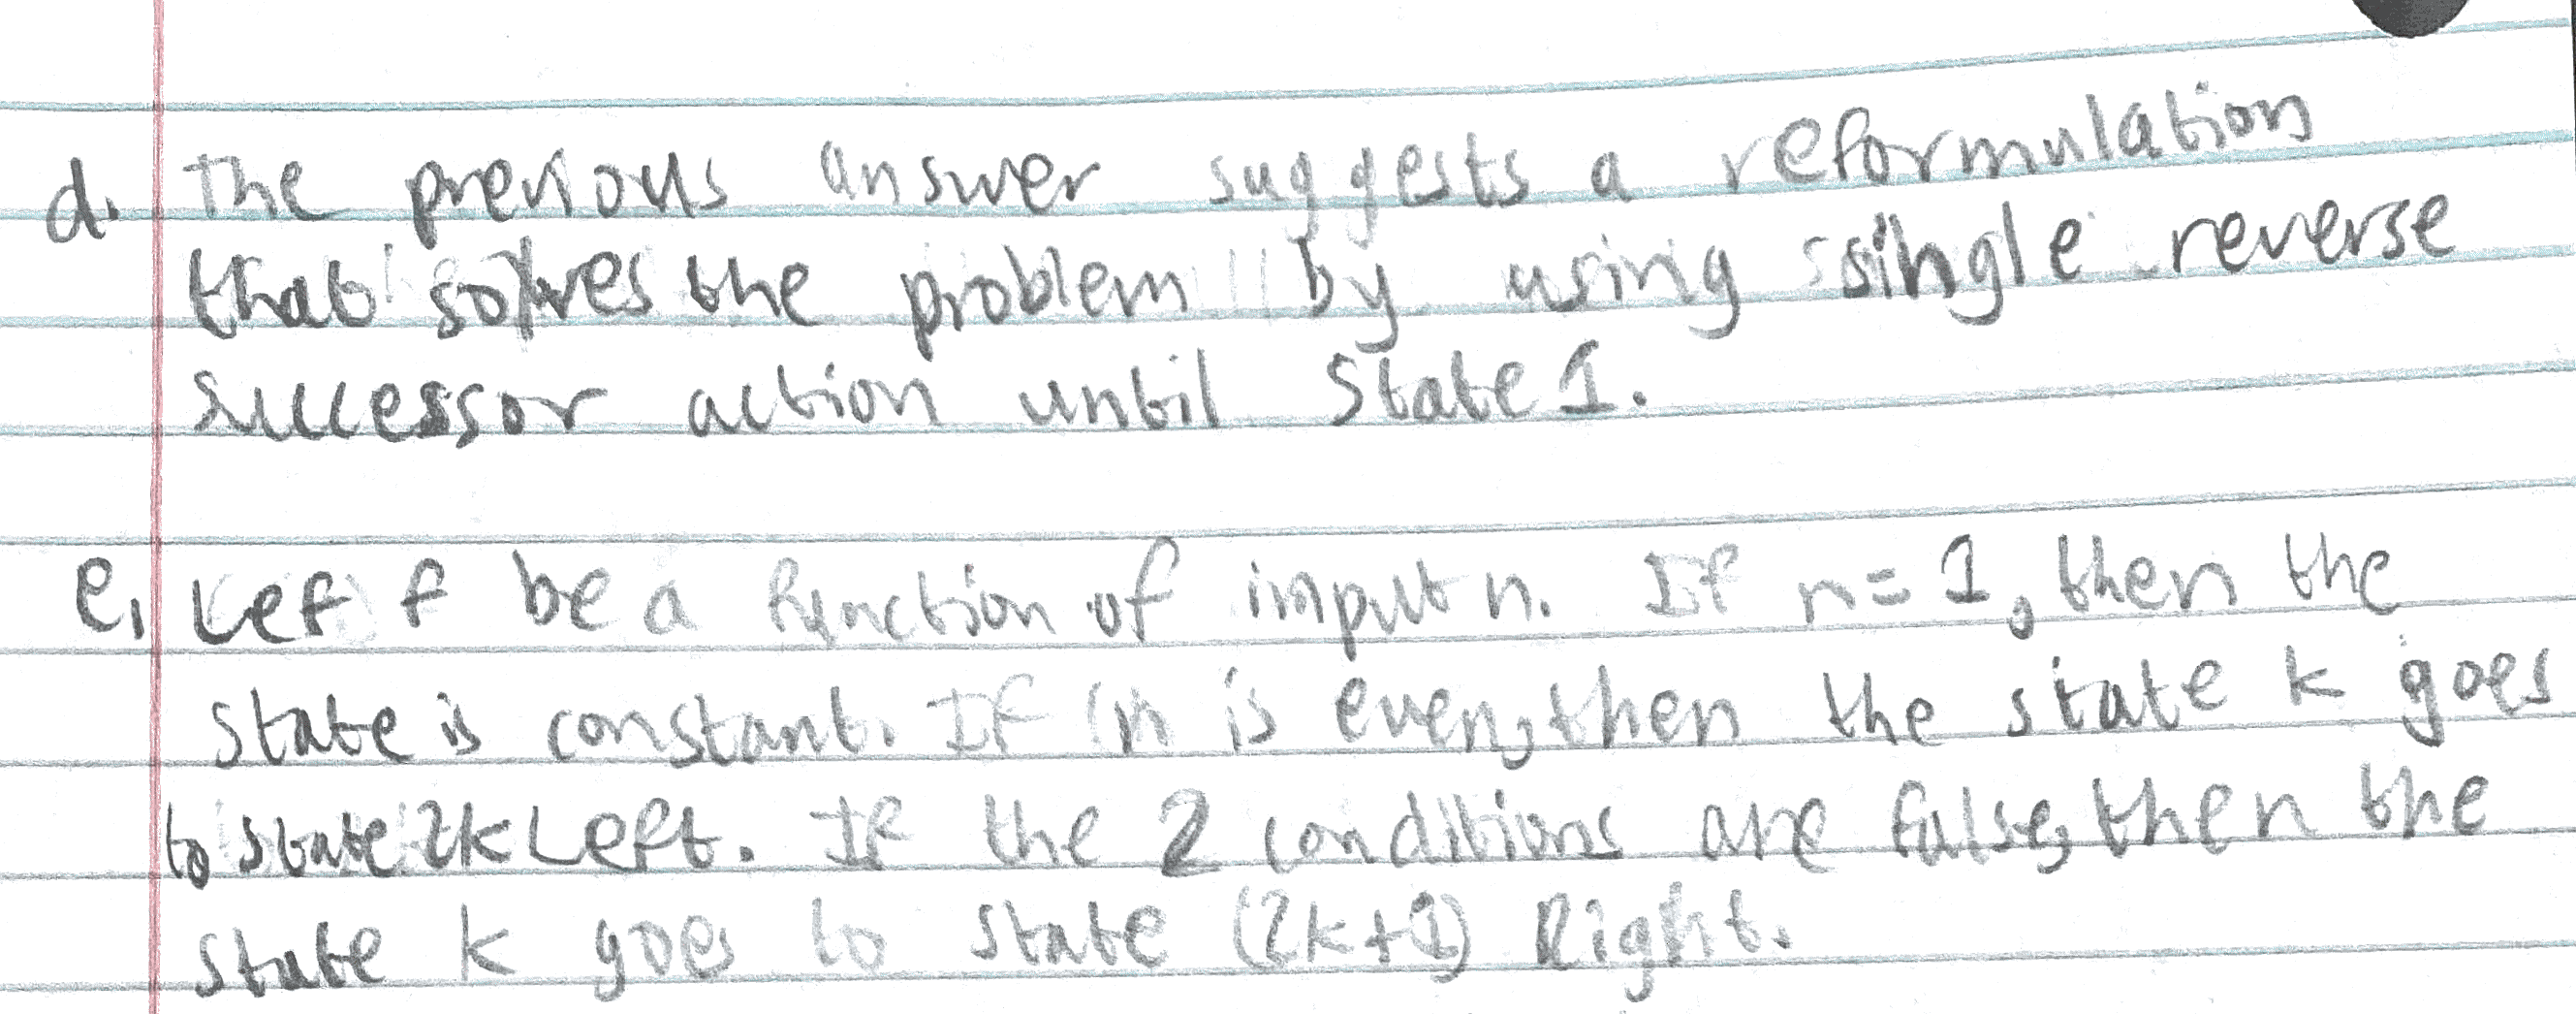 d. The previous answer suggests a reformulation
that solves the problem by using single reverse
successor action until State 1.
e. Let f be a function of input n. If n=1, then the
State is constant. If n is even, then the state k goes
to state 2k Left. If the 2 conditions are false, then the
state k goes to state (2k+1) Right.